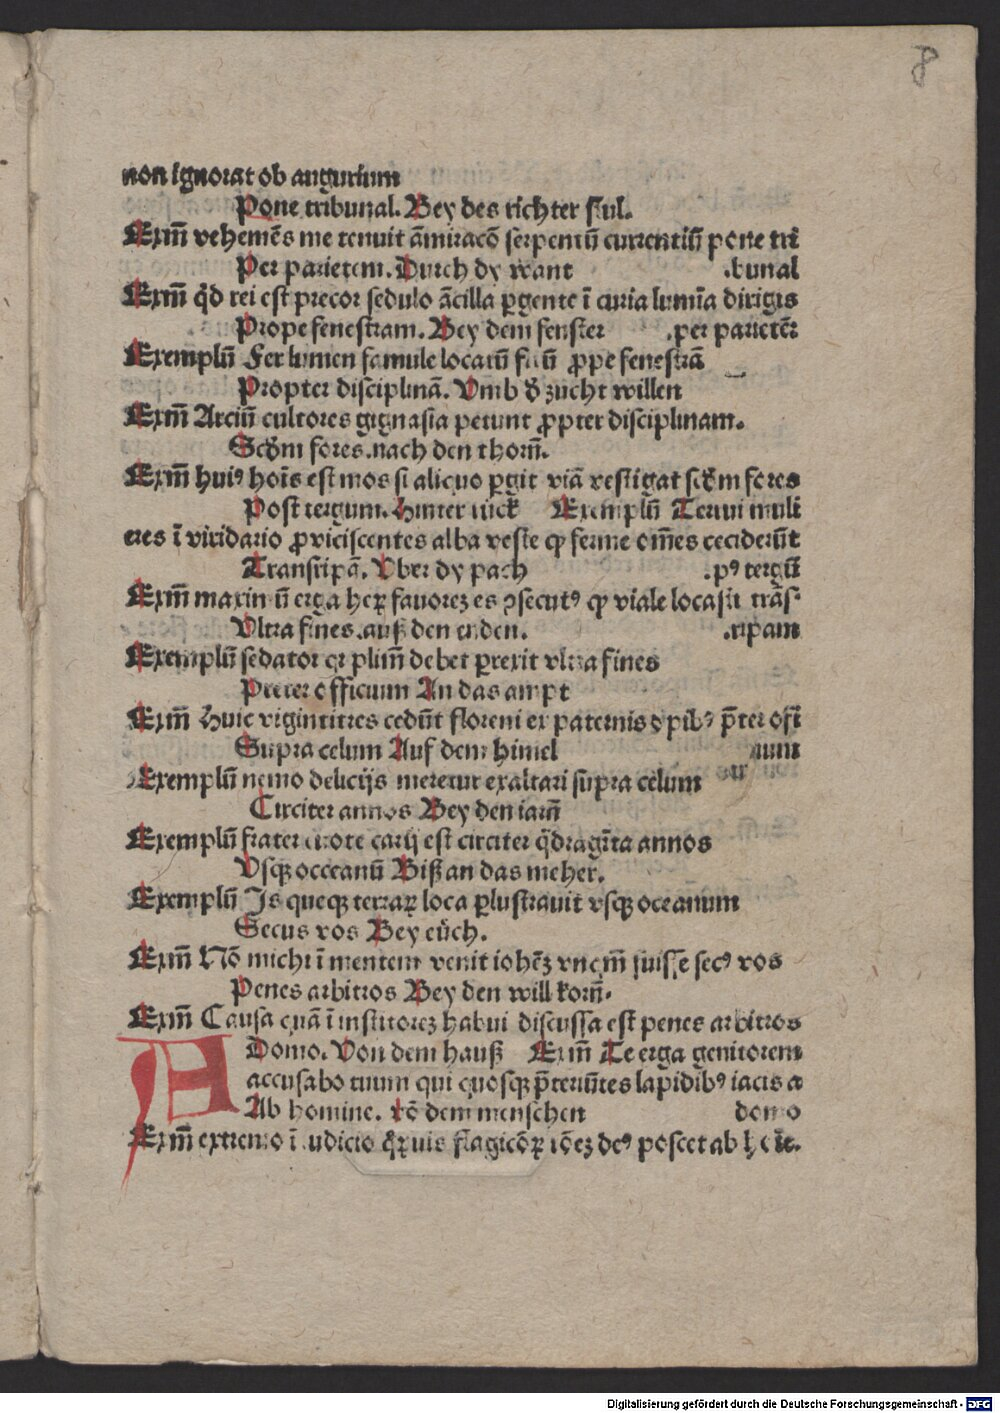 8
non ignorat ob augurium
Pone tribunal. Bey des richter stul.
Exm̄ vehemēs me tenuit āmiracō serpentū currentiū pone tri
Per parietem. Durch dy want .bunal
Exm̄ qd̄ rei est precor sedulo ācilla ꝑgente ī curia lumīa dirigis
Prope fenestram. Bey dem fenster .per parietēs
Exemplū Fer lumen famule locatū ꝓpe fenestrā
Propter disciplinā. Vmb d̄ zucht willen
Exm̄ Arciū cultores gignasia petunt ꝓpter disciplinam.
Scd̄m fores. nach den thorn̄.
Exm̄ huiꝰ hoīs est mos si aliquo ꝑgit viā vestigat scd̄m fores
Post tergum. Hinter rück Exemplū Terui muli
eres ī viridario ꝓviciscentes alba veste ꝙ ferme om̄es cecider̄ut
Transripā. Vber dy pach .pꝰ tergū
Exm̄ maximū erga heꝝ fauorez es ꝯsecutꝰ ꝙ viale locasti trās
Vltra fines. auß den enden. .ripam
Exemplū sedator qr plim̄ debet ꝑrexit vltra fines
Preter officium An das ampt
Exm̄ Huic vigintitres cedūt floreni ex paternis opibꝰ p̄ter offi
Supra celum Auf dem himel
Exemplū nemo delicijs meretur exaltari supra celum
Circiter annos Bey den iarn̄
Exemplū frater carij est circiter q̄dragīta annos
Vsqꝫ occeanū Biß an das meher.
Exemplū Js queqꝫ terraꝝ loca ꝑlustrauit vsqꝫ oceanum
Secus vos Bey eüch.
Exm̄ Nō michi ī mentem venit iohēz vnqm̄ fuisse secꝰ vos
Penes arbitros Bey den willkorn̄.
Exm̄ Causa quā ī institorez habui discussa est penes arbitros
A Domo. Von dem hauß Exm̄ Te erga genitorem
accusabo tuum qui quosqꝫ p̄tereūtes lapidibꝰ iacis a
Ab homine. vō dem menschen domo
Exm̄ extremo ī iudicio flagicōꝝ deꝰ poscet ab hoīe.
Digitalisierung gefördert durch die Deutsche Forschungsgemeinschaft - DFG